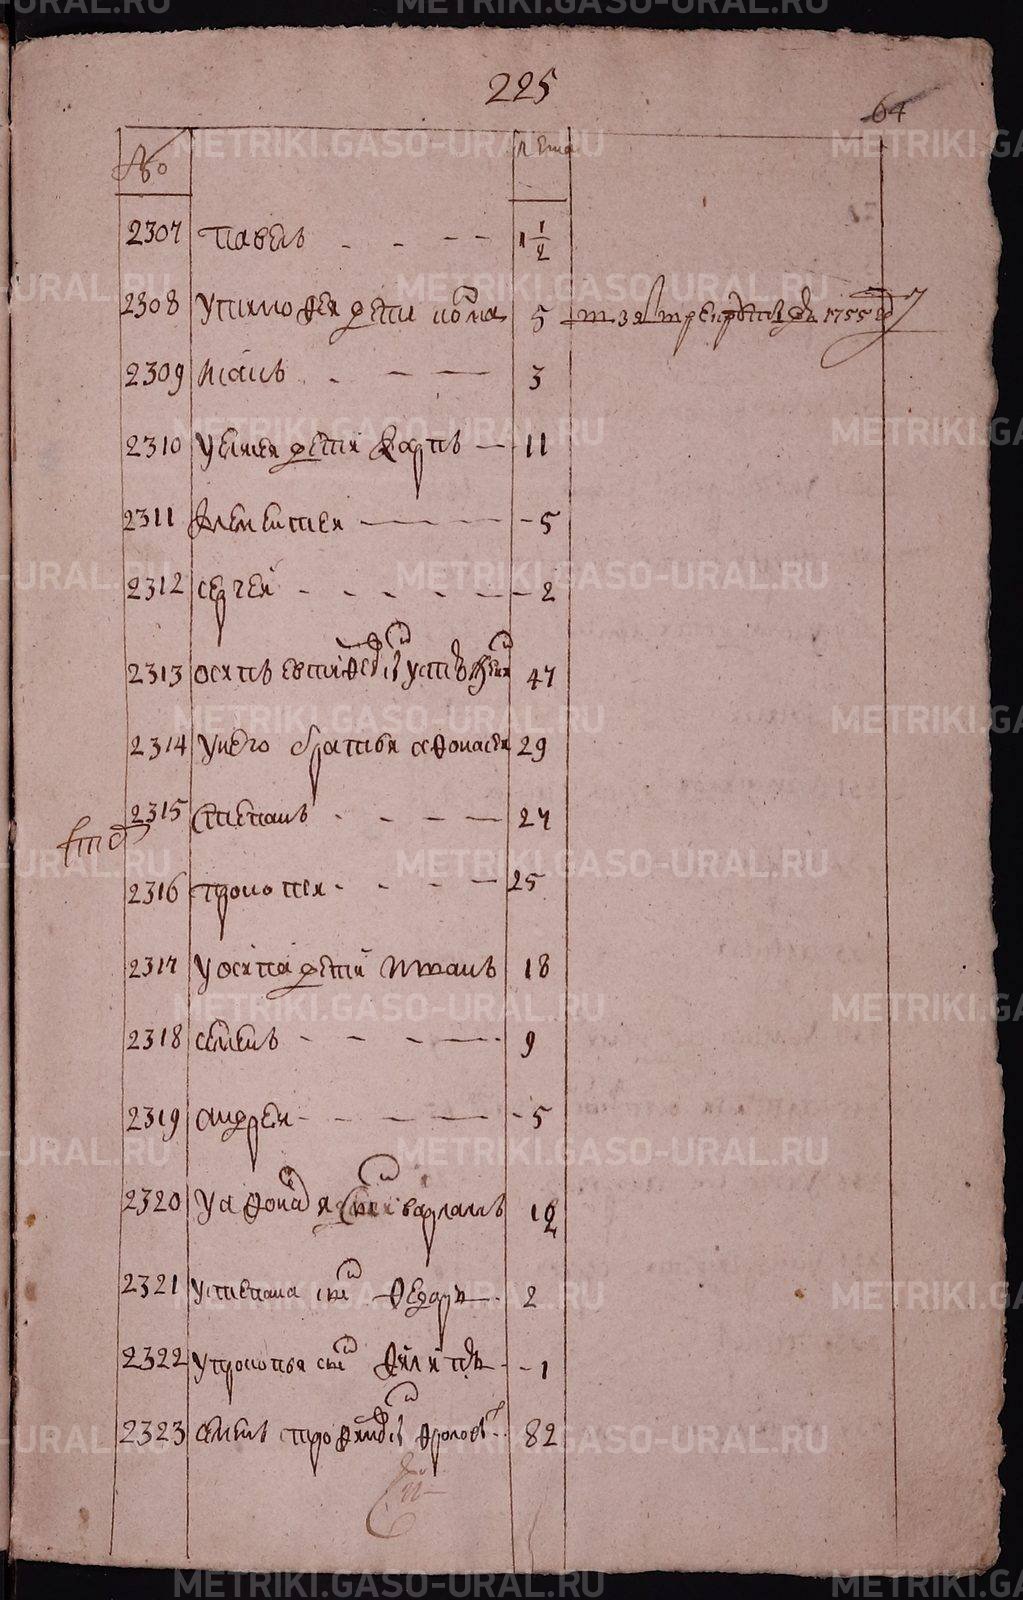 225
64
№ лета
2307 павелъ 1 1/2
2308 у тимофея дети иона 5 1755
2309 иванъ 3
2310 у дети карпъ 11
2311 климентеи 5
2312 сергей 2
2313 осипъ 47
2314 у него братья афонасеи 29
2315 степанъ 27
2316 прокопеи 25
2317 у осипа дети иванъ 18
2318 семенъ 9
2319 андреи 5
2320 у афонасья снъ варламъ
2321 у степана снъ федоръ 2
2322 у прокопья снъ филипъ 1
2323 семенъ трофимовъ фролов 82
METRIKI.GASO-URAL.RU